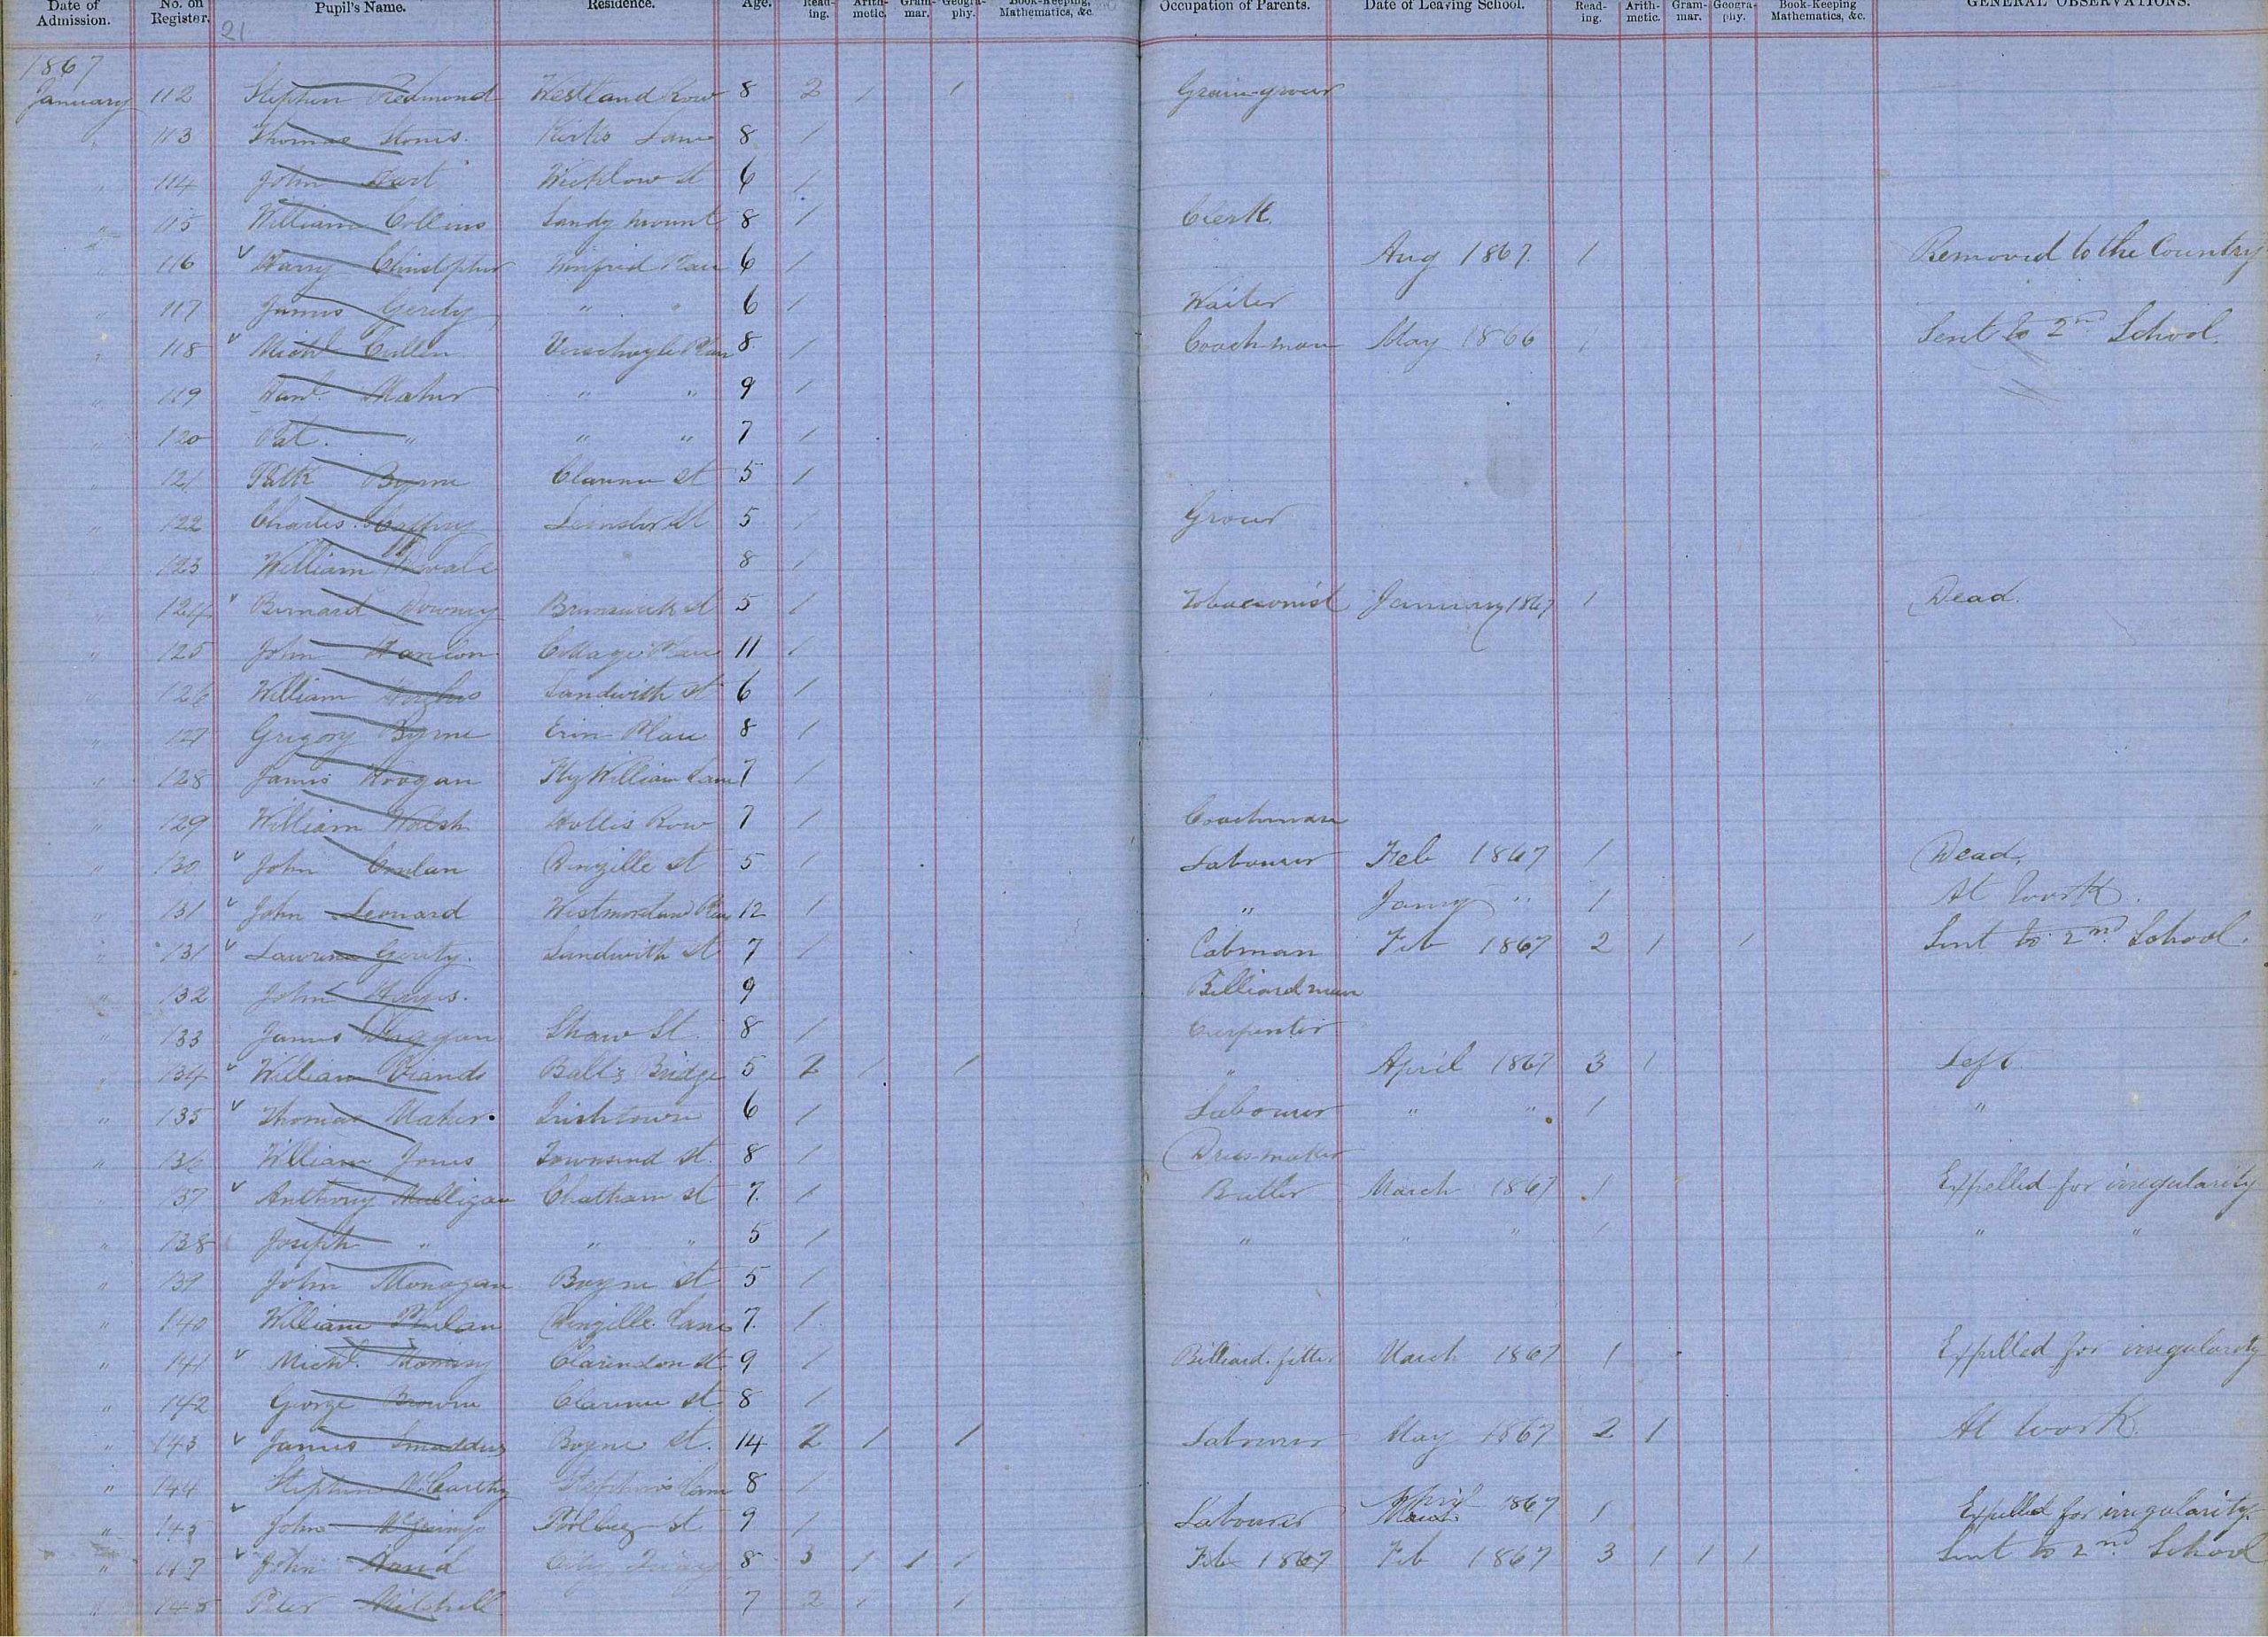 Date of Admission. No. on Register. Pupil's Name. Residence. Age. Read-ing. Arith-metic. Gram-mar. Geogra-phy. Book-Keeping, Mathematics, &c. Occupation of Parents. Date of Leaving School. Read-ing. Arith-metic. Gram-mar. Geogra-phy. Book-Keeping Mathematics, &c. GENERAL OBSERVATIONS.
21
1867
January 112 Stephen Redmond Westland Row 8 2 1 1 Grain-grocer
" 113 Thomas Kirks Lane 8 1
" 114 John Hart Wicklow St 6 1
" 115 William Collins Sandy mount 8 1 Clerk.
" 116 Harry Christopher Winfred Place 6 1 Aug 1867. 1 Removed to the Country
" 117 James Gerity " " 6 1 Waiter
" 118 Michl Cullen Verschoyle Place 8 1 Coach-man May 1866 1 Sent to 2nd School.
" 119 Danl. Maher " " 9 1
" 120 Pat. " " " 7 1
" 121 Patk Byrne Clarence St 5 1
" 122 Charles Caffrey Leinster St 5 1 Grocer
" 123 William 8 1
" 124 Bernard Downey Brunswick st 5 1 Tobacconist January 1867 1 Dead.
" 125 John Hanlon Cottage Place 11 1
" 126 William Hughes Sandwith st 6 1
" 127 Gregory Byrne Erin Place 8 1
" 128 James Hoogan FitzWilliam Lane 7 1
" 129 William Walsh Hollis Row 7 1 Coachman
" 130 John Conlan Denzille st 5 1 Labourer Feb 1867 1 Dead.
" 131 John Leonard Westmoreland Place 12 1 " Jany " 1 At Work.
" 131 Lawrence Gerity. Sandwith St 7 1 Cabman Feb 1867 2 1 1 Sent to 2nd School.
" 132 John Hayes. 9 Billiard man
" 133 James Duggan Shaw St. 8 1 Carpenter
" 134 William Viands Balls Bridge 5 2 1 1 " April 1867 3 1 Left
" 135 Thomas Maher. Irishtown 6 1 Labourer " " 1 "
" 136 William Jones Townsend st. 8 1 Dress-maker
" 137 Anthony Mulligan Chatham st 7. 1 Butler March 1867 1 Expelled for irregularity
" 138 Joseph " " " 5 1 " " " 1 " "
" 139 John Monogan Boyne st 5 1
" 140 William Phelan Denzille Lane 7. 1
" 141 Michl. Clarendon st 9 1 Billiard-fitter March 1867 1 Expelled for irregularity
" 142 George Browne Clarence st 8 1
" 143 James Smadders Boyne st. 14 2 1 1 Labourer May 1867 2 1 At Work.
" 144 Stephen McCarthy Stephen's Lane 8 1
" 145 John Poolbeg st 9 1 Labourer April 1867 1 Expelled for irregularity.
" 147 John Hand City Quay 8 3 1 1 1 Feb 1867 Feb 1867 3 1 1 1 Sent to 2nd School
" 148 Peter Mitchell 7 2 1 1